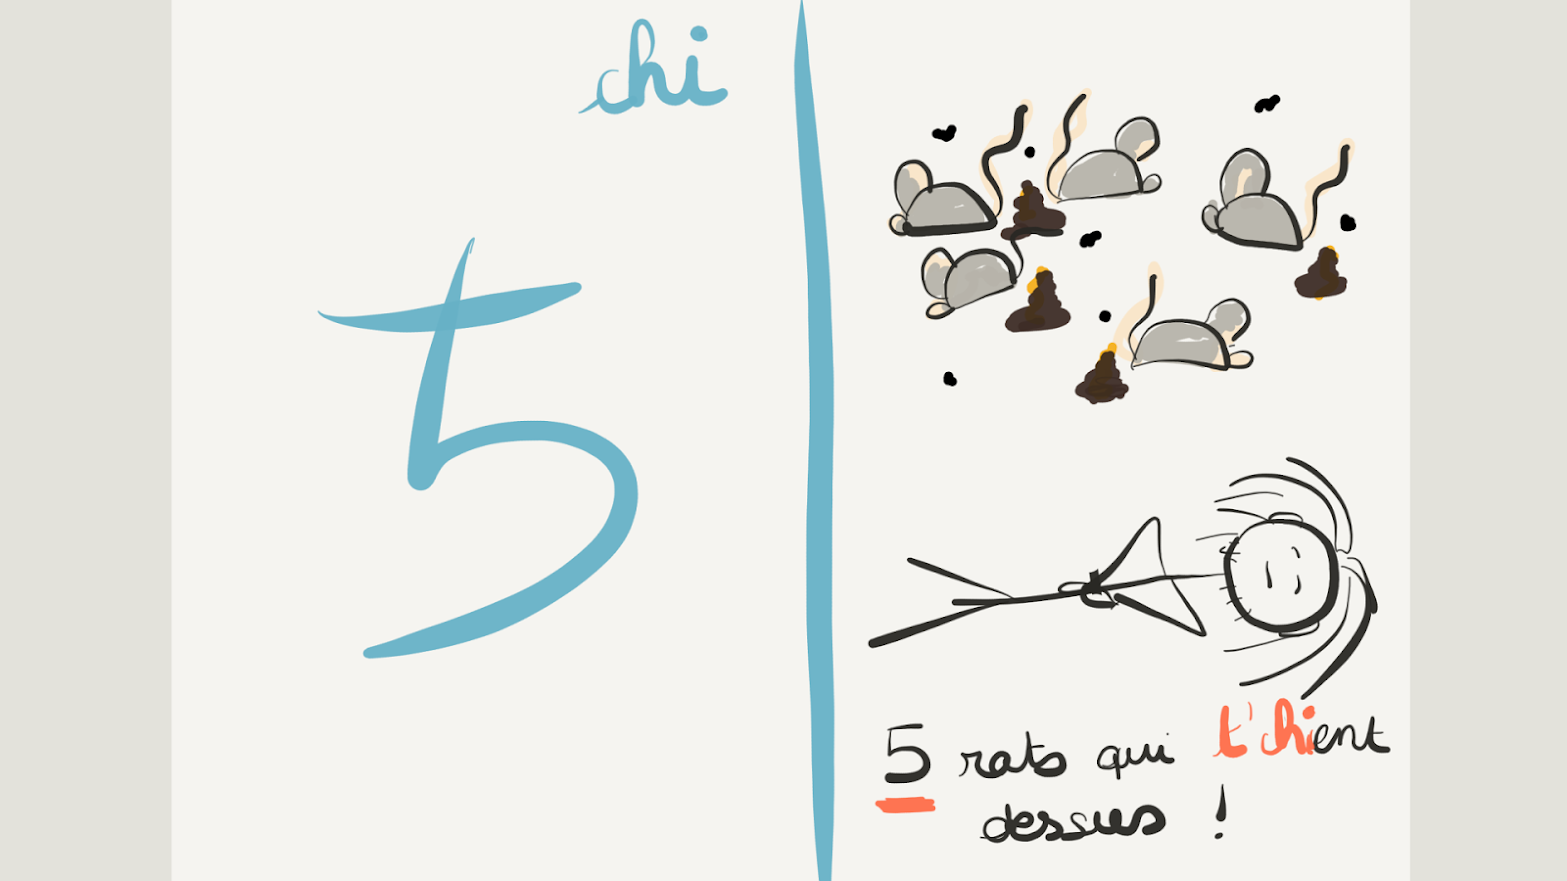 chi
ち
5 rats qui t'chient
dessus !